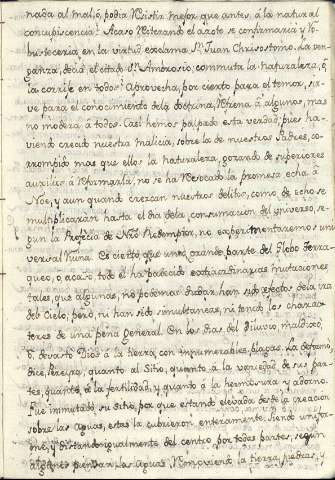 nada al mal, ó, podia resistir mejor que antes, á la natural
concupiscencia? Acaso reiterando el azote se confirmaria y ro-
busteceria, en la virtud exclama Sn. Juan Chrisostomo. La ven-
ganza, decia el citado Sn. Ambrosio; commuta la naturaleza, ó
la corrije en todos? Aprovecha, por cierto para el temor, sir-
ve para el conocimiento de la doctrina, refrena á algunos, mas
no modera á todos. Casi hemos palpado esta verdad, pues ha-
viendo crecido nuestra malicia, sobre la de nuestros Padres, co-
rrompido mas que ellos la naturaleza, gozando de superiores
auxilios á reformarla, no se há revocado la promesa echa á
Noe, y aun quando crezcan nuestros delitos, como de echo se
multiplicarán hasta el dia de la consumacion del universo, se-
gun la Profecia de Nro. Redemptor, no experimentaremos uni-
versal ruina. Es cierto que una grande parte del Globo Terra-
queo, ó acaso todo el ha padecido extraordinarias mutaciones
tales, que algunas, no podemos dudar han sido efectos de la ira
del Cielo, pero, ni han sido simultaneas, ni tenido los charac-
teres de una pena General. En los dias del Diluvio maldixo,
ó, devastó Dios á la tierra con innumerables plagas. La dañó,
dice Pereyro, quanto al Sitio, quanto á la variedad de sus par-
tes, quanto á la fertilidad, y quanto á la hermosura y adorno.
Fue inmutado su sitio, por que estando elevada desde la creacion
sobre las aguas, estas la cubrieron enteramente. Siendo unifor-
me, y distando igualmente del centro por todas partes, segun
algunos piensan, las aguas, removiendo la tierra, piedras, y